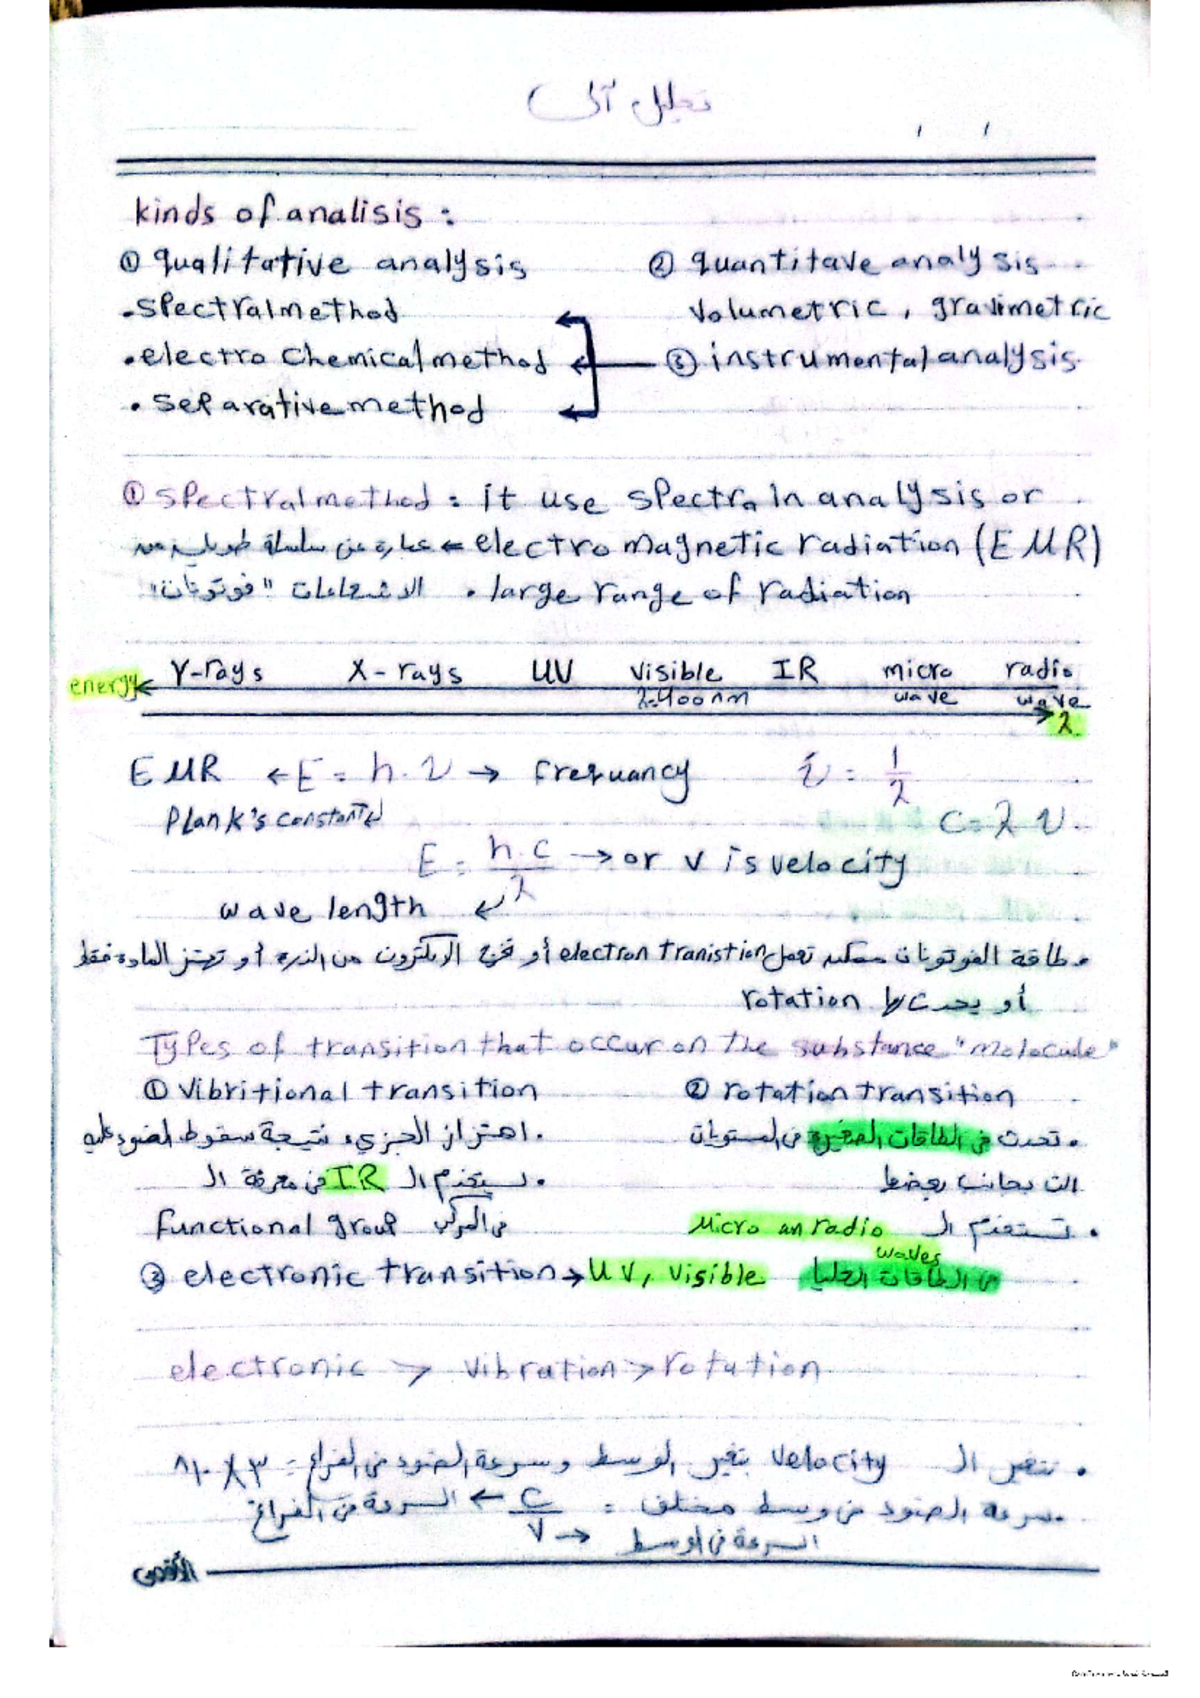 تحليل آلى
kinds of analisis :
① qualitative analysis ② quantitave analysis
• spectral method volumetric , gravimetric
• electro chemical method ③ instrumental analysis
• separative method
① spectral method : it use spectra in analysis or
electro magnetic radiation (EMR) ← عبارة عن سلسلة طويلة من
الاشعاعات "فوتونات" • large range of radiation
energy γ-rays X-rays UV visible IR micro wave radio wave
λ
EMR ← E = h.ν → frequancy ν̄ = 1/λ
Plank's constant C = λ ν
E = h.c/λ → or v is velocity
wave length
• طاقة الفوتونات ممكن تعمل electron tranistion أو تخرج الإلكترون من الذرة أو تهتز المادة فقط
أو يحدث لها rotation
Types of transition that occur on the substance "molocule"
① vibritional transition ② rotation transition
• اهتزاز الجزيء نتيجة سقوط الضوء عليه • تحدث فى الطاقات الصغيرة فى المستويات
• نستخدم ال IR فى معرفة ال بجانب بعضها
functional group فى المركب • تستخدم ال Micro an radio waves
③ electronic transition → UV, visible فى الطاقات العليا
electronic > vibration > rotation
• تتغير ال velocity بتغير الوسط وسرعة الضوء فى الفراغ = ٣ × ١٠^٨
سرعة الضوء فى وسط مختلف = C/v ← السرعة فى الفراغ
السرعة فى الوسط
الأقصى